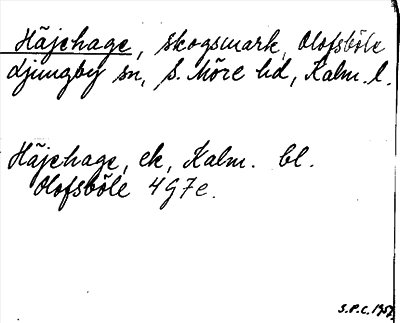 Häjehage, skogsmark, Olofsböle
Ljungby sn, S. Möre hd, Kalm. l.
Häjehage, ek, Kalm. bl.
Olofsböle 4 G7e.
S.P.C. 1959